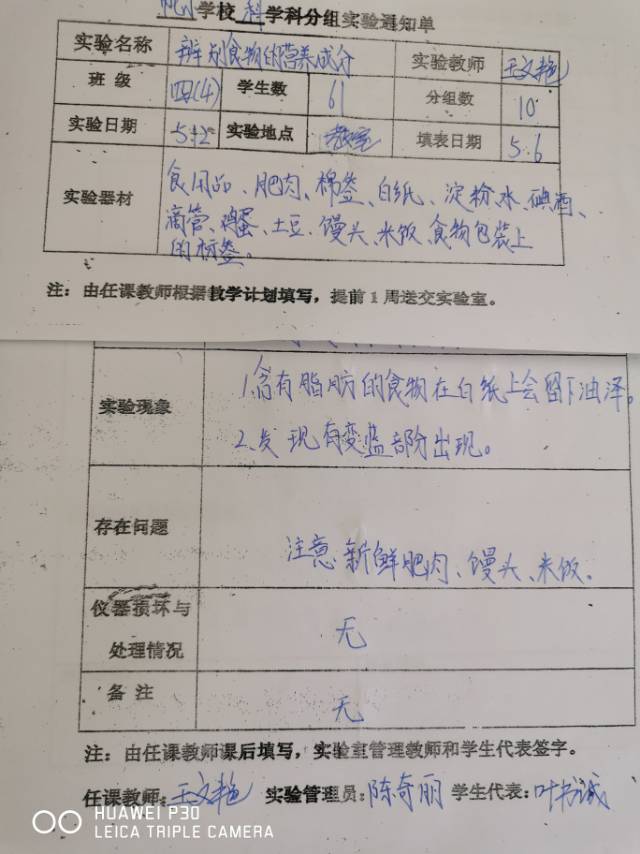 学校 科学科分组实验通知单
实验名称 辨别食物的营养成分 实验教师 王文艳
班级 四(4) 学生数 61 分组数 10
实验日期 5.12 实验地点 教室 填表日期 5.6
实验器材 食用品、肥肉、棉签、白纸、淀粉水、碘酒、
滴管、鸡蛋、土豆、馒头、米饭、食物包装上
的标签。
注：由任课教师根据教学计划填写，提前1周送交实验室。
实验现象 1.含有脂肪的食物在白纸上会留下油泽。
2.发现有变蓝部分出现。
存在问题 注意新鲜肥肉、馒头、米饭。
仪器损坏与
处理情况 无
备注 无
注：由任课教师课后填写，实验室管理教师和学生代表签字。
任课教师：王文艳 实验管理员：陈奇丽 学生代表：叶书诚
HUAWEI P30
LEICA TRIPLE CAMERA